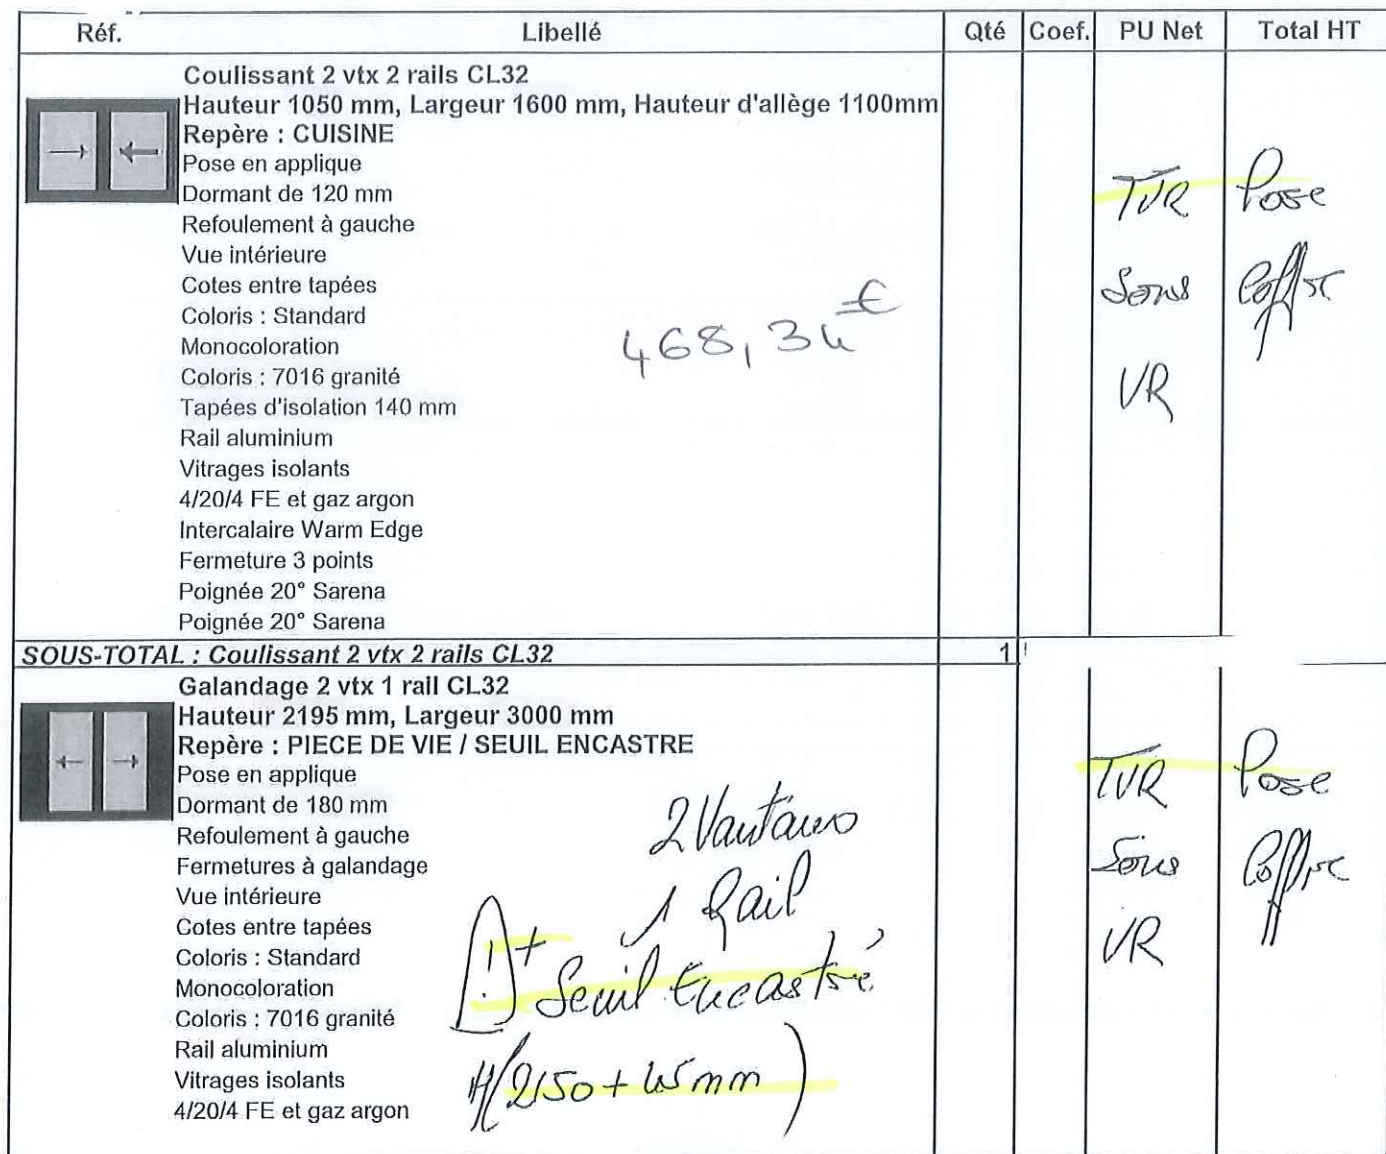 Réf. Libellé Qté Coef. PU Net Total HT
Coulissant 2 vtx 2 rails CL32
Hauteur 1050 mm, Largeur 1600 mm, Hauteur d'allège 1100mm
Repère : CUISINE
Pose en applique
Dormant de 120 mm
Refoulement à gauche
Vue intérieure
Cotes entre tapées
Coloris : Standard
Monocoloration
Coloris : 7016 granité
Tapées d'isolation 140 mm
Rail aluminium
Vitrages isolants
4/20/4 FE et gaz argon
Intercalaire Warm Edge
Fermeture 3 points
Poignée 20° Sarena
Poignée 20° Sarena
468,34 €
TVR Pose
Sous Coffre
VR
SOUS-TOTAL : Coulissant 2 vtx 2 rails CL32 1
Galandage 2 vtx 1 rail CL32
Hauteur 2195 mm, Largeur 3000 mm
Repère : PIECE DE VIE / SEUIL ENCASTRE
Pose en applique
Dormant de 180 mm
Refoulement à gauche
Fermetures à galandage
Vue intérieure
Cotes entre tapées
Coloris : Standard
Monocoloration
Coloris : 7016 granité
Rail aluminium
Vitrages isolants
4/20/4 FE et gaz argon
2 Vantaux
1 Rail
! + Seuil Encastré
H(2150 + 45 mm)
TVR Pose
Sous Coffre
VR